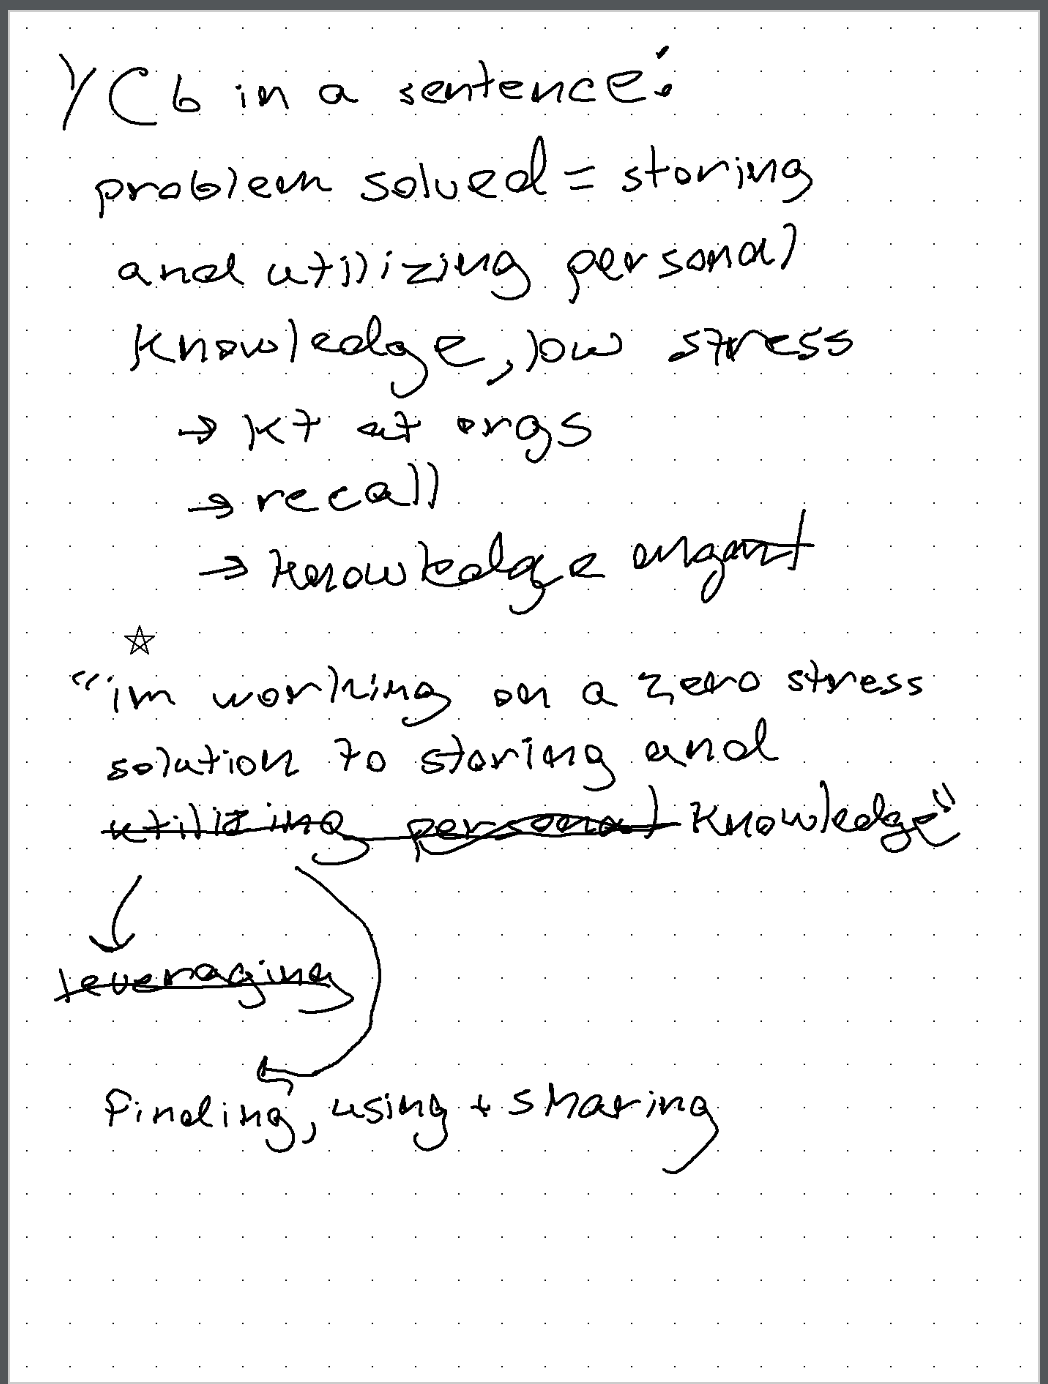 YCb in a sentence:
problem solved = storing
and utilizing personal
knowledge, low stress
→ KT at orgs
→ recall
→ knowledge mgmt
☆
"im working on a zero stress
solution to storing and
utilizing personal knowledge"
leveraging
finding, using + sharing